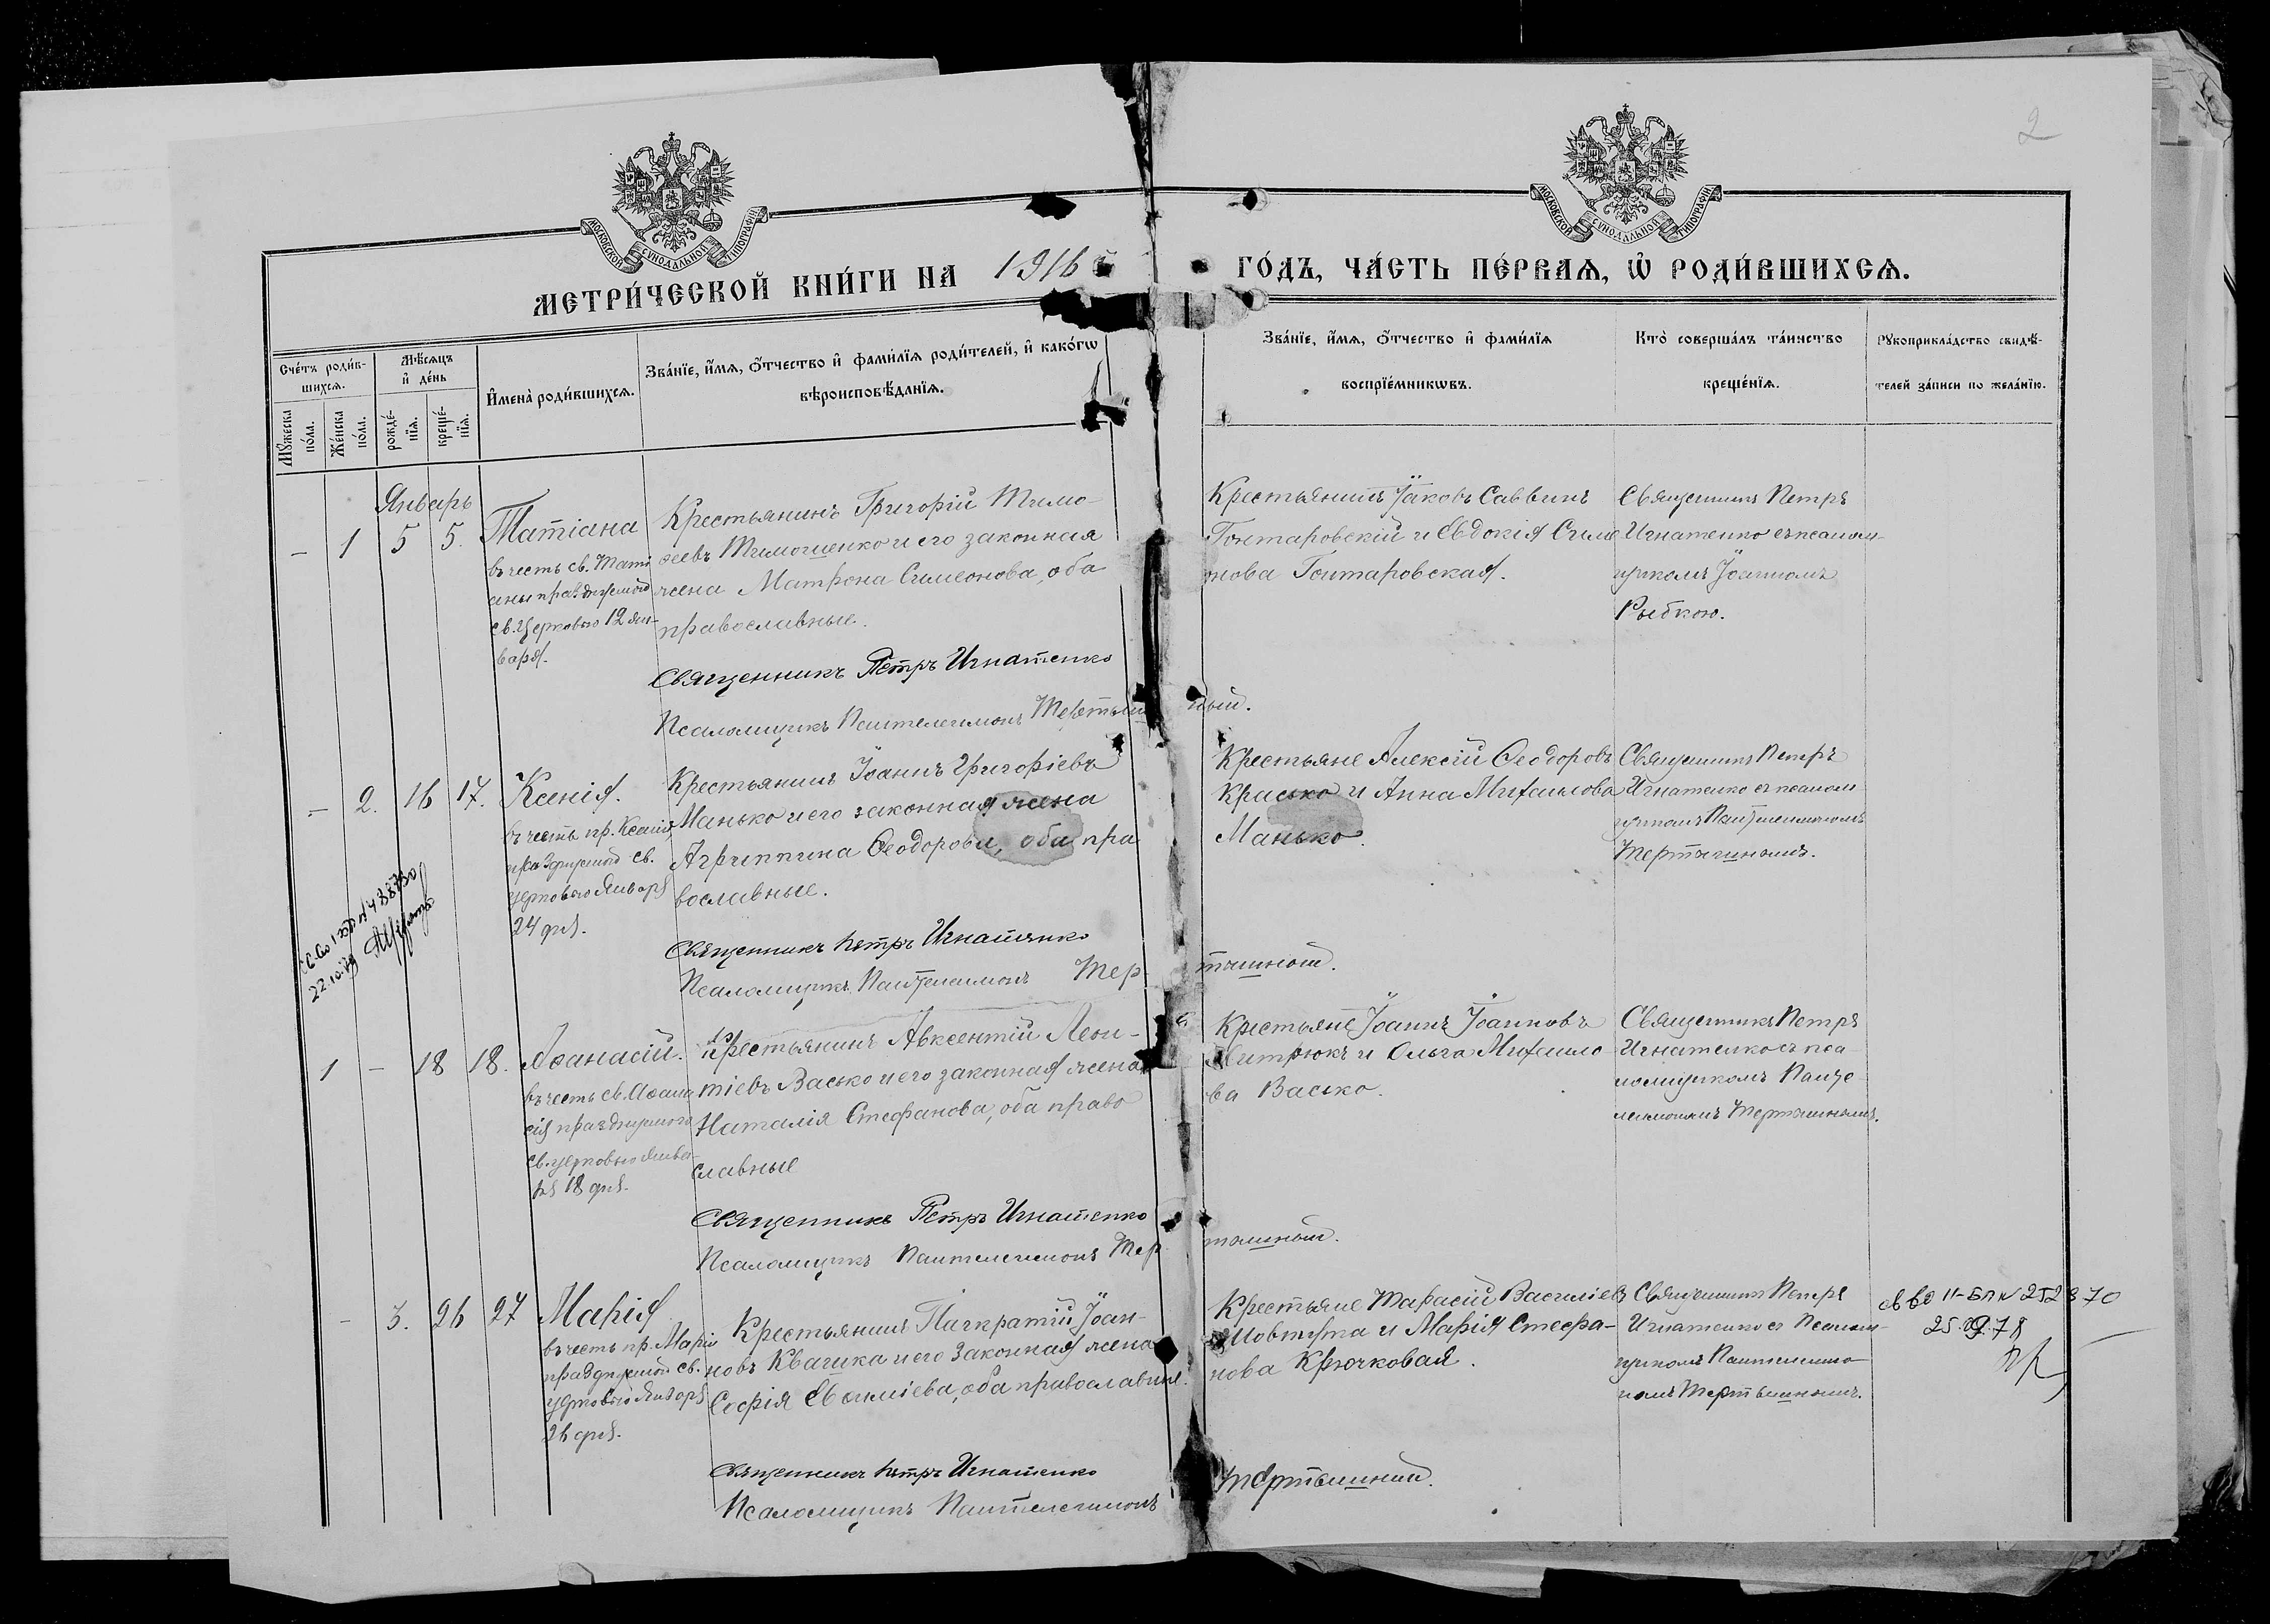 2
МОСКОВСКОЙ СѴНОДАЛЬНОЙ ТИПОГРАФІИ
МОСКОВСКОЙ СѴНОДАЛЬНОЙ ТИПОГРАФІИ
МЕТРИ́ЧЕСКОЙ КНИ́ГИ НА 1916
ГО́ДЪ, ЧА́СТЬ ПЕ́РВАѦ, Ѽ РОДИ́ВШИХСѦ.
Сче́тъ роди́в-
шихсѧ.
Мꙋ́жеска по́ла.
Же́нска по́ла.
Мѣ́сѧцъ
и҆ де́нь
рожде́-
нїѧ.
креще́-
нїѧ.
И҆мена̀ роди́вшихсѧ.
Зва́нїе, и҆́мѧ, ѻ҆́тчество и҆ фамѝлїѧ роди́телей, и҆ како́гѡ
вѣроисповѣ́данїѧ.
Зва́нїе, и҆́мѧ, ѻ҆́тчество и҆ фамѝлїѧ
воспрїе́мникѡвъ.
Кто̀ соверша́лъ та́инство
креще́нїѧ.
Рꙋкоприкла́дство свидѣ́-
телей за́писи по жела́нїю.
Январь
– 1 5 5.
Татіана
въ честь св. Тати
аны празднуемой
св. Церковью 12 ян-
варя.
Крестьянинъ Григорій Тимо-
ѳеевъ Тимошенко и его законная
жена Матрона Симеонова, оба
православные.
Священникъ Петръ Игнатенко
Псаломщикъ Пантелеимонъ Тертыш
ный.
Крестьянинъ Іаковъ Саввинъ
Гонтаровскій и Евдокія Симе
онова Гонтаровская.
Священникъ Петръ
Игнатенко съ псалом-
щикомъ Іоанномъ
Рыбкою.
– 2. 16 17.
Ксенія.
въ честь пр. Ксеніи
празднуемой св.
церковью Января
24 дня.
Крестьянинъ Іоаннъ Григоріевъ
Манько и его законная жена
Агриппина Ѳеодорова, оба пра
вославные.
Священникъ Петръ Игнатенко
Псаломщикъ Пантелеимонъ Тер-
тышный.
Крестьяне Алексій Ѳеодоровъ
Красько и Анна Михаилова
Манько.
Священникъ Петръ
Игнатенко съ псалом
щикомъ Пантелеимономъ
Тертышнымъ.
1 – 18 18.
Аѳанасій.
въ честь св. Аѳана
сія празднуемого
св. церковью Янва-
ря 18 дня.
Крестьянинъ Авксентій Леон-
тіевъ Васько и его законная жена
Наталія Стефанова, оба право
славные
Священникъ Петръ Игнатенко
Псаломщикъ Пантелеимонъ Тер
тышный.
Крестьяне Іоаннъ Іоанновъ
Митрюкъ и Ольга Михаило-
ва Васько.
Священникъ Петръ
Игнатенко съ пса-
ломщикомъ Панте-
леимономъ Тертышнымъ.
– 3. 26 27
Марія
въ честь пр. Маріи
празднуемой св.
церковью Января
26 дня.
Крестьянинъ Панкратій Іоан-
новъ Квашка и его законная жена
Софія Евѳиміева, оба православные.
Священникъ Петръ Игнатенко
Псаломщикъ Пантелеимонъ
Тертышный.
Крестьяне Тарасій Василіевъ
Шовтута и Марія Стефа-
нова Крючковая.
Священникъ Петръ
Игнатенко съ Псалом-
щикомъ Пантелеимо-
номъ Тертышнымъ.
св во II-БЛ № 252870
25.09.78